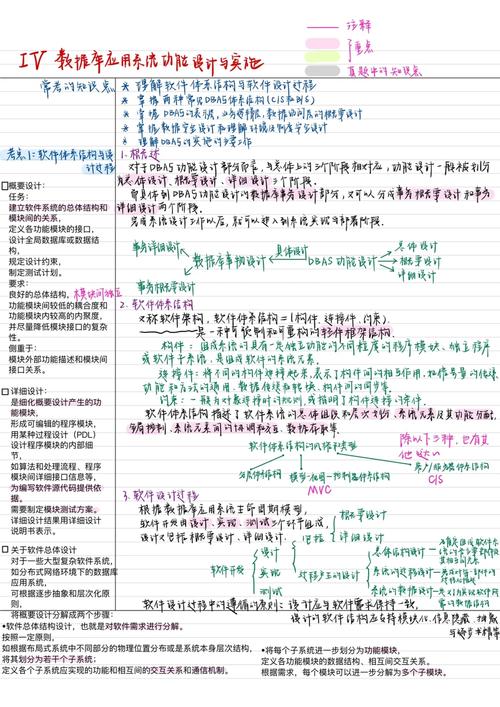 注释
重点
真题中的知识点
IV 数据库应用系统功能设计与实施
常考的知识点
* 理解软件体系结构与软件设计过程
* 掌握两种常见DBAS体系结构(C/S和B/S)
* 理解DBAS的实施的主要工作
考点1:软件体系结构与设计过程
1. 概述
对于DBAS功能设计部分而言,与总体上的三个阶段相对应,功能设计一般被划分
总体设计、概要设计、详细设计三个阶段。
而具体到DBAS功能设计的数据库事务设计部分,又可以分成事务概要设计和事务
详细设计两个阶段。
完成系统设计工作以后,就可以进入到系统实现与部署阶段。
事务详细设计
事务概要设计
数据库事务设计
具体设计
DBAS功能设计
总体设计
概要设计
详细设计
概要设计:
任务:
建立软件系统的总体结构和
模块间的关系,
定义各功能模块的接口,
设计全局数据库或数据结
构,
规定设计约束,
制定测试计划。
要求:
良好的总体结构,
模块间独立
功能模块间较低的耦合度和
功能模块内较高的内聚度,
并尽量降低模块接口的复杂
性。
侧重于:
模块外部功能描述和模块间
接口关系。
2. 软件体系结构
又称软件架构,软件体系结构={构件,连接件,约束}
是一种可预制和可重构的软件框架结构。
构件:组成系统的具有一定独立功能的不同粒度的程序模块、独立程序
或软件子系统,是组成软件的系统元素。
连接件:将不同的构件连接起来,表示了构件间的相互作用,如信号量的传递、
功能和方法的调用、数据传送和转换、构件间的同步等。
约束:一般为对象连接时的规则,或指明了构件连接的条件。
软件体系结构描述了软件系统的总体组织和层次划分、系统元素及其功能分配、
全局控制、系统元素间的协调和交互、数据存取等。
软件体系结构的风格和类型
除以下三种,也有其他这些
分层体系结构
模型-视图-控制器体系结构
MVC
客户/服务器体系结构
C/S
详细设计:
是细化概要设计产生的功
能模块,
形成可编辑的程序模块,
用某种过程设计(PDL)
设计程序模块的内部细
节,
如算法和处理流程、程序
模块间详细接口信息等,
为编写软件源代码提供依
据。
需要制定模块测试方案。
详细设计结果用详细设计
说明书表示。
3. 软件设计过程
根据数据库应用系统生命周期模型,
软件开发由设计、实现、测试三个环节组成,
设计又包括概要设计、详细设计。
包括
概要设计
详细设计
软件开发
设计
实现
测试
总体结构设计
关于软件总体设计
对于一些大型复杂软件系统,
如分布式网络环境下的数据库
应用系统,
可根据逐步抽象和层次化原
则,
将概要设计分解成两个步骤:
软件设计过程中的遵循的原则:设计应与软件需求保持一致,
设计的软件结构应支持模块化、信息隐藏、
•软件总体结构设计,也就是对软件需求进行分解。
按照一定原则,
如根据布局式系统中不同部分的物理位置分布或是系统本身层次结构,
将其划分为若干个子系统;
定义各个子系统应实现的功能和相互间的交互关系和通信机制。
•将每个子系统进一步划分为功能模块,
定义各功能模块的数据结构、相互间交互关系。
根据需求,每个模块可以进一步分解为多个子模块。